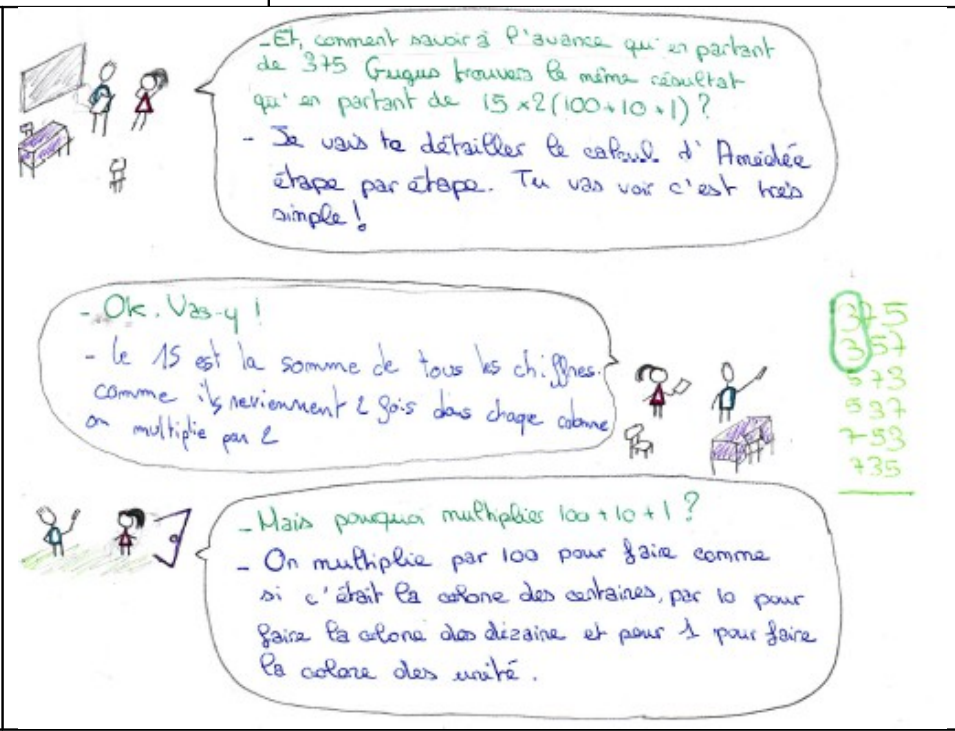 -Et, comment savoir à l'avance qu'en partant
de 375 Gugus trouvera le même résultat
qu'en partant de 15 x2(100+10+1)?
- Je vais te détailler le calcul d'Amédée
étape par étape. Tu vas voir c'est très
simple!
- Ok. Vas-y!
- le 15 est la somme de tous les chiffres.
comme ils reviennent 2 fois dans chaque colonne
on multiplie par 2
375
357
573
537
753
735
- Mais pourquoi multiplier 100+10+1?
- On multiplie par 100 pour faire comme
si c'était la colone des centaines, par 10 pour
faire la colone des dizaine et pour 1 pour faire
la colone des unité.